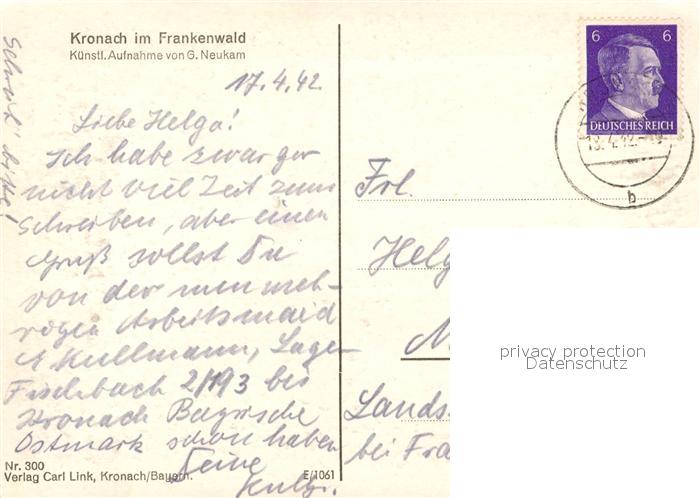 Kronach im Frankenwald
Künstl. Aufnahme von G. Neukam
17.4.42.
Liebe Helga!
Ich habe zwar gar
nicht viel Zeit zum
Schreiben, aber einen
Gruß sollst Du
von der nunmeh-
rigen Arbeitsmaid
A Kullmann, Lager
Fischbach 2/193 bei
Kronach Bayrische
Ostmark schon haben
Deine
Schreib' bitte!
Nr. 300
Verlag Carl Link, Kronach/Bayern.
E/1061
6 6
DEUTSCHES REICH
b
Frl.
Helg
Lands
bei Fra
privacy protection
Datenschutz